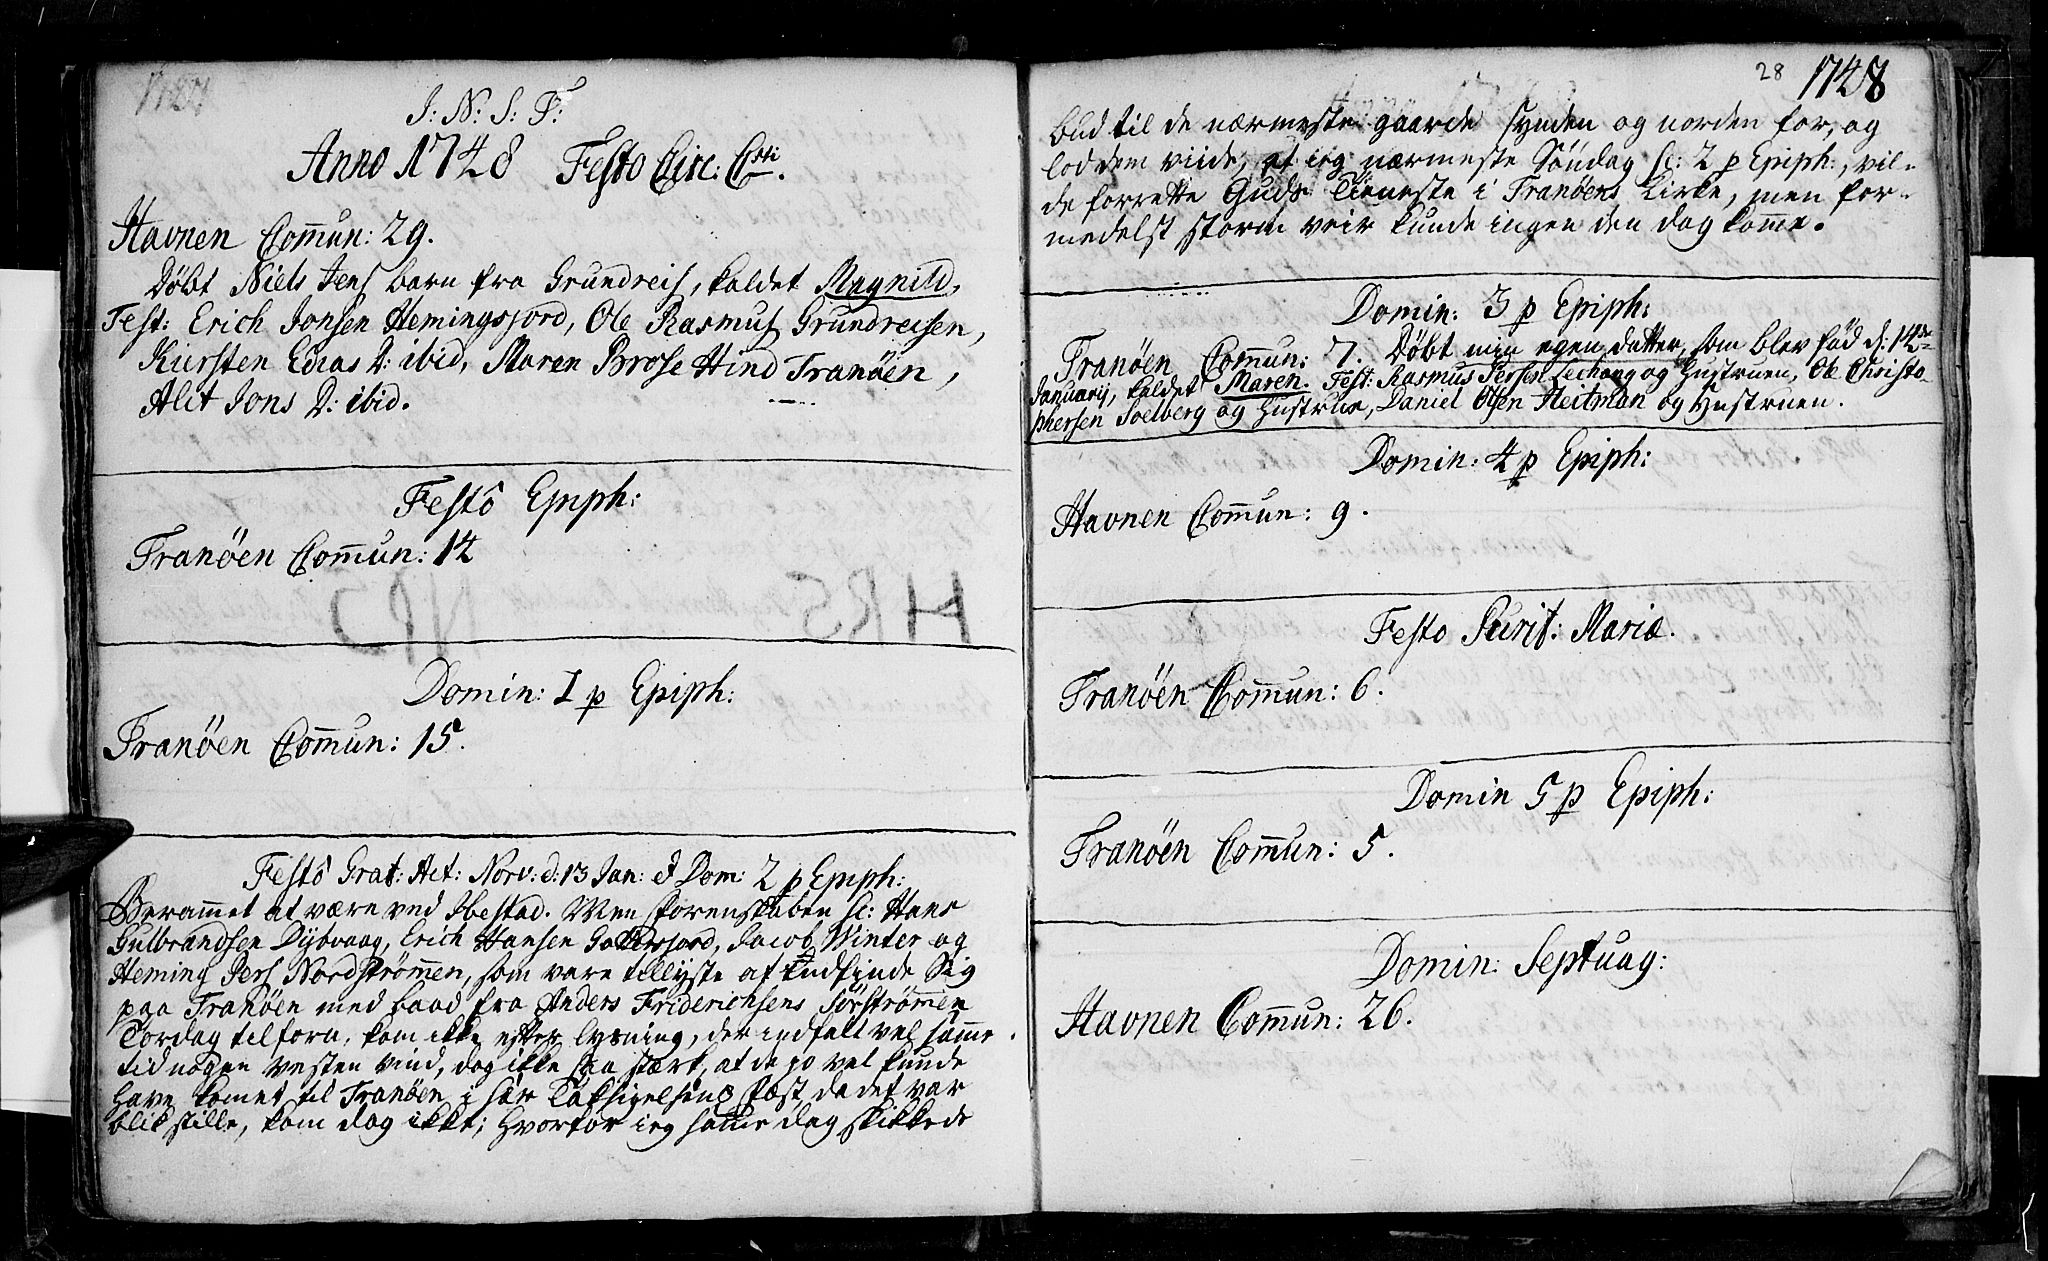 J: N: S: F:
Anno 1748 Festo Circ: Csti.
Havnen Com̄un: 29.
Döbt Niels Jens barn fra Grundreis, kaldet Magnild,
Test: Erich Jonsen Hemingsjord, Ole Rasmus Grundreisen,
Kirsten Edias D: ibid, Maren Brose Hind Tranöen,
Alit Jons D: ibid.
Festo Epiph:
Tranöen Com̄un: 14
Domin: 1 p Epiph:
Tranöen Com̄un: 15.
Festo Grat: Act: Norv: d: 13 Jan: & Dom: 2 p Epiph:
Beram̄et at være ved Ibestad. Men skorenskaben sc: Hans
Gulbrandsen Dybvaag, Erich Hansen Gaxersjord, Jacob Winter og
Heming Pers Nordströmen, som vare tillyste at indfinde Sig
paa Tranöen med baad fra Anders Friderichsens Sörströmen
Torsdag tilforn, kom ikke efter lysning, der indfalt vel sam̄e
tid nogen vesten vind, dog ikke saa stærk, at de jo vel kunde
have komet til Tranöen, i hær Taksigelsens fæst, da det var
blik stille, kom dog ikke; hvorfor ieg sam̄e dag skikkede
28 1748
bud til de nærmeste gaarde synden og norden for, og
lod dem viide, at ieg nærmeste Söndag sc: 2 p Epiph:, vil-
de forrette Guds Tieneste i Tranöens Kirke, men for-
medelst storm veir kunde ingen den dag kom̄e.
Domin: 3 p Epiph:
Tranöen Com̄un: 7. Döbt min egen datter, som blev fød d: 14de
Januarij, kaldet Maren. Test: Rasmus Persen Lechang og Hustruen, Ole Christo-
phersen Soelberg og Hustrue, Daniel Olsen Heitman og Hustruen.
Domin: 4 p Epiph:
Havnen Com̄un: 9.
Festo Purif: Mariæ.
Tranöen Com̄un: 6.
Domin 5 p Epiph:
Tranöen Com̄un: 5.
Domin: Septuag:
Havnen Com̄un: 26.